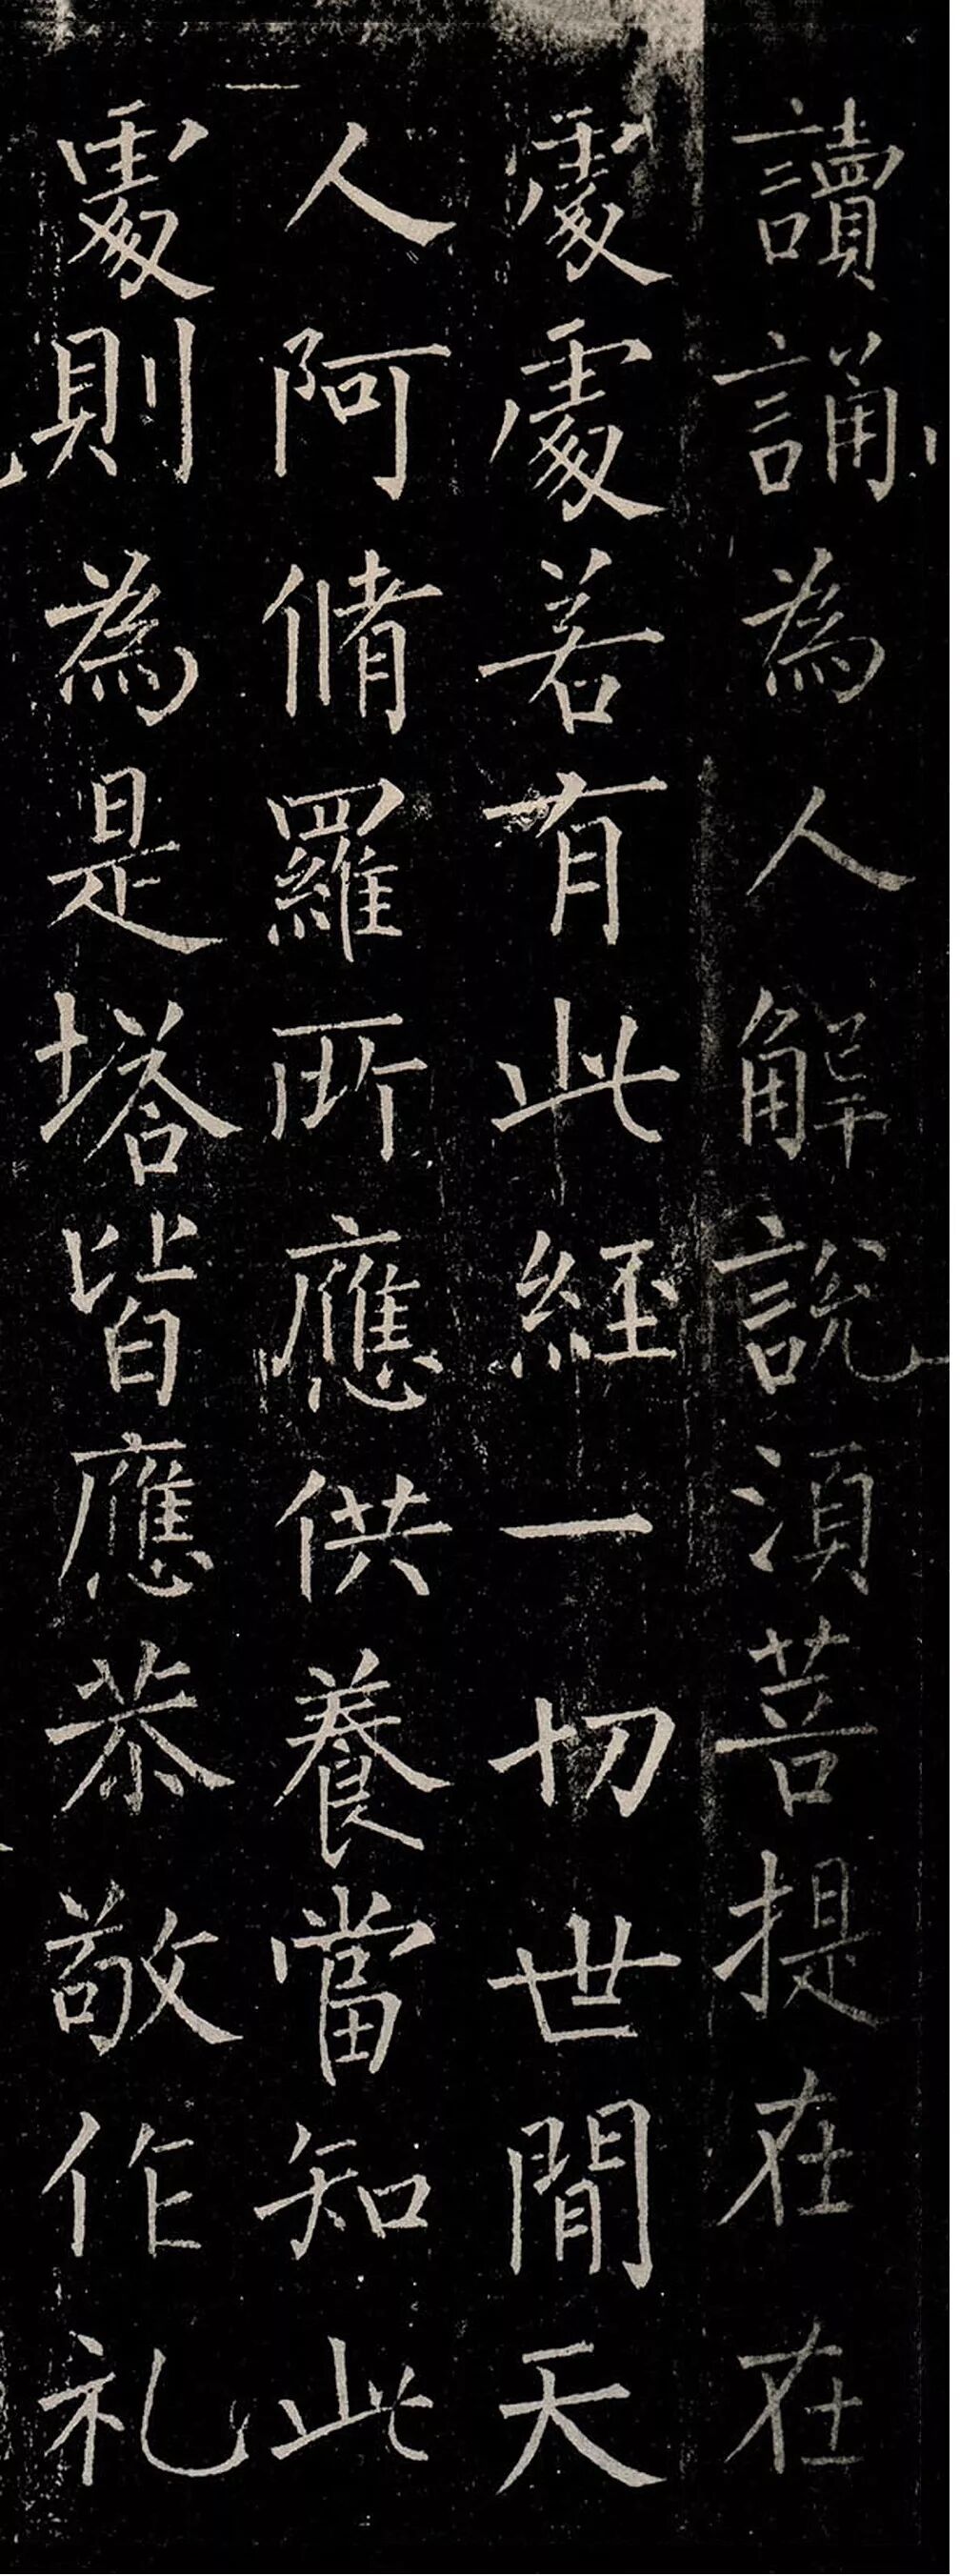 讀誦為人解說須菩提在在
處處若有此經一切世間天
人阿脩羅所應供養當知此
處則為是塔皆應恭敬作礼